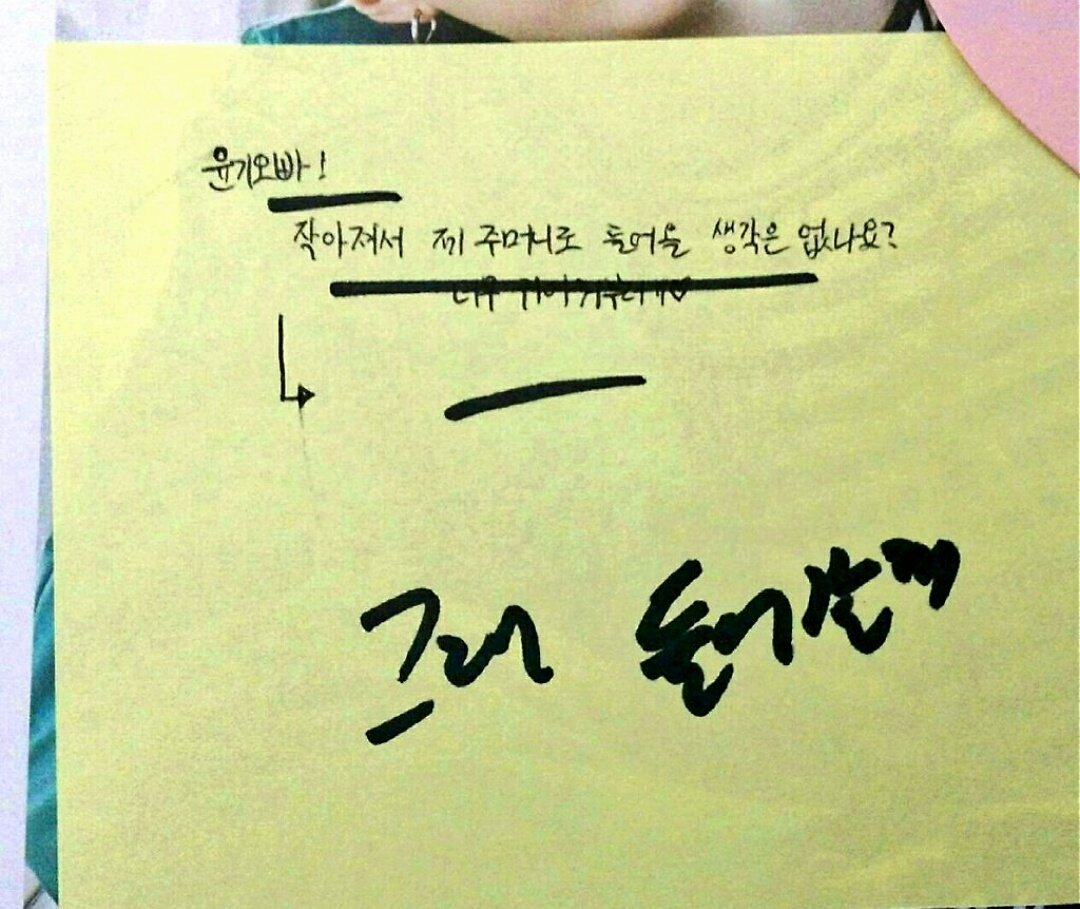 윤기오빠!
작아져서 제 주머니로 들어올 생각은 없나요?
너무 귀여
그래 들어갈께